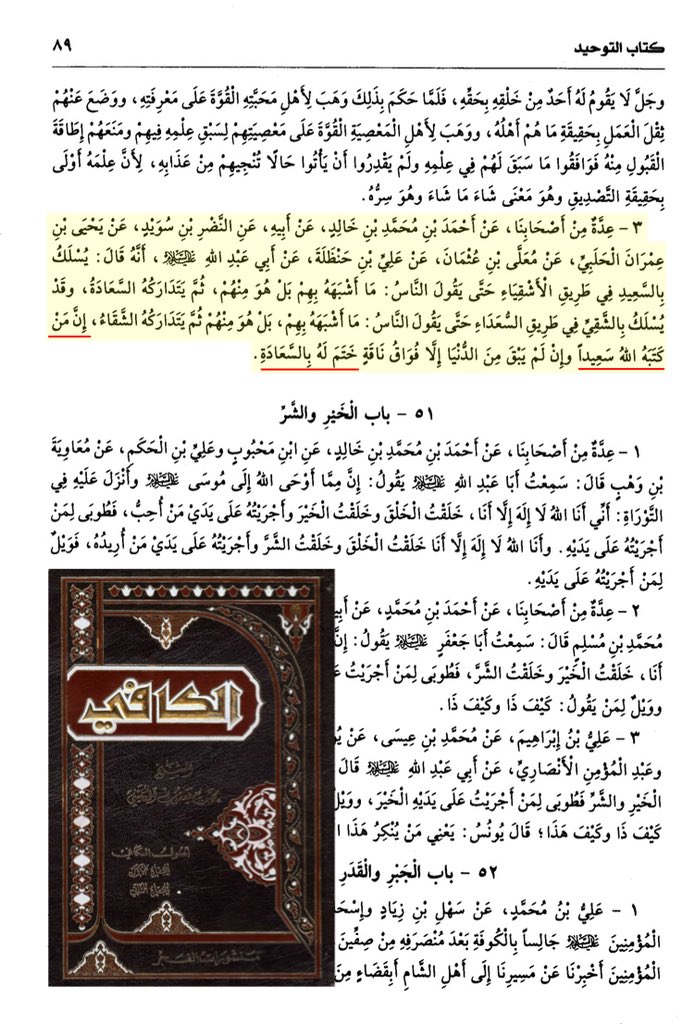 كتاب التوحيد
٨٩
وجَلَّ لَا يَقُومُ لَهُ أَحَدٌ مِنْ خَلْقِهِ بِحَقِّهِ، فَلَمَّا حَكَمَ بِذَلِكَ وَهَبَ لِأَهْلِ مَحَبَّتِهِ الْقُوَّةَ عَلَى مَعْرِفَتِهِ، ووَضَعَ عَنْهُمْ
ثِقْلَ الْعَمَلِ بِحَقِيقَةِ مَا هُمْ أَهْلُهُ، ووَهَبَ لِأَهْلِ الْمَعْصِيَةِ الْقُوَّةَ عَلَى مَعْصِيَتِهِمْ لِسَبْقِ عِلْمِهِ فِيهِمْ ومَنَعَهُمْ إِطَاقَةَ
الْقَبُولِ مِنْهُ فَوَافَقُوا مَا سَبَقَ لَهُمْ فِي عِلْمِهِ ولَمْ يَقْدِرُوا أَنْ يَأْتُوا حَالًا تُنْجِيهِمْ مِنْ عَذَابِهِ، لِأَنَّ عِلْمَهُ أَوْلَى
بِحَقِيقَةِ التَّصْدِيقِ وهُوَ مَعْنَى شَاءَ مَا شَاءَ وهُوَ سِرُّهُ.
٣ - عِدَّةٌ مِنْ أَصْحَابِنَا، عَنْ أَحْمَدَ بْنِ مُحَمَّدِ بْنِ خَالِدٍ، عَنْ أَبِيهِ، عَنِ النَّضْرِ بْنِ سُوَيْدٍ، عَنْ يَحْيَى بْنِ
عِمْرَانَ الْحَلَبِيِّ، عَنْ مُعَلَّى بْنِ عُثْمَانَ، عَنْ عَلِيِّ بْنِ حَنْظَلَةَ، عَنْ أَبِي عَبْدِ اللهِ عَلَيْهِ السَّلَام، أَنَّهُ قَالَ: يُسْلَكُ
بِالسَّعِيدِ فِي طَرِيقِ الْأَشْقِيَاءِ حَتَّى يَقُولَ النَّاسُ: مَا أَشْبَهَهُ بِهِمْ بَلْ هُوَ مِنْهُمْ، ثُمَّ يَتَدَارَكُهُ السَّعَادَةُ، وقَدْ
يُسْلَكُ بِالشَّقِيِّ فِي طَرِيقِ السُّعَدَاءِ حَتَّى يَقُولَ النَّاسُ: مَا أَشْبَهَهُ بِهِمْ، بَلْ هُوَ مِنْهُمْ ثُمَّ يَتَدَارَكُهُ الشَّقَاءُ، إِنَّ مَنْ
كَتَبَهُ اللهُ سَعِيداً وإِنْ لَمْ يَبْقَ مِنَ الدُّنْيَا إِلَّا فُوَاقُ نَاقَةٍ خَتَمَ لَهُ بِالسَّعَادَةِ.
٥١ - باب الْخَيْرِ والشَّرِّ
١ - عِدَّةٌ مِنْ أَصْحَابِنَا، عَنْ أَحْمَدَ بْنِ مُحَمَّدِ بْنِ خَالِدٍ، عَنِ ابْنِ مَحْبُوبٍ وعَلِيِّ بْنِ الْحَكَمِ، عَنْ مُعَاوِيَةَ
بْنِ وَهْبٍ قَالَ: سَمِعْتُ أَبَا عَبْدِ اللهِ عَلَيْهِ السَّلَام يَقُولُ: إِنَّ مِمَّا أَوْحَى اللهُ إِلَى مُوسَى عَلَيْهِ السَّلَام وأَنْزَلَ عَلَيْهِ فِي
التَّوْرَاةِ: أَنِّي أَنَا اللهُ لَا إِلَهَ إِلَّا أَنَا، خَلَقْتُ الْخَلْقَ وخَلَقْتُ الْخَيْرَ وأَجْرَيْتُهُ عَلَى يَدَيْ مَنْ أُحِبُّ، فَطُوبَى لِمَنْ
أَجْرَيْتُهُ عَلَى يَدَيْهِ. وأَنَا اللهُ لَا إِلَهَ إِلَّا أَنَا خَلَقْتُ الْخَلْقَ وخَلَقْتُ الشَّرَّ وأَجْرَيْتُهُ عَلَى يَدَيْ مَنْ أُرِيدُهُ، فَوَيْلٌ
لِمَنْ أَجْرَيْتُهُ عَلَى يَدَيْهِ.
٢ - عِدَّةٌ مِنْ أَصْحَابِنَا، عَنْ أَحْمَدَ بْنِ مُحَمَّدٍ، عَنْ أَبِي
مُحَمَّدِ بْنِ مُسْلِمٍ قَالَ: سَمِعْتُ أَبَا جَعْفَرٍ عَلَيْهِ السَّلَام يَقُولُ: إِنَّ
أَنَا، خَلَقْتُ الْخَيْرَ وخَلَقْتُ الشَّرَّ، فَطُوبَى لِمَنْ أَجْرَيْتُ
ووَيْلٌ لِمَنْ يَقُولُ: كَيْفَ ذَا وكَيْفَ ذَا.
٣ - عَلِيُّ بْنُ إِبْرَاهِيمَ، عَنْ مُحَمَّدِ بْنِ عِيسَى، عَنْ
وعَبْدِ الْمُؤْمِنِ الْأَنْصَارِيِّ، عَنْ أَبِي عَبْدِ اللهِ عَلَيْهِ السَّلَام قَالَ
الْخَيْرِ والشَّرِّ فَطُوبَى لِمَنْ أَجْرَيْتُ عَلَى يَدَيْهِ الْخَيْرَ، ووَيْلٌ
كَيْفَ ذَا وكَيْفَ هَذَا؛ قَالَ يُونُسُ: يَعْنِي مَنْ يُنْكِرُ هَذَا
٥٢ - باب الْجَبْرِ والْقَدَرِ
١ - عَلِيُّ بْنُ مُحَمَّدٍ، عَنْ سَهْلِ بْنِ زِيَادٍ وإِسْحَا
الْمُؤْمِنِينَ عَلَيْهِ السَّلَام جَالِساً بِالْكُوفَةِ بَعْدَ مُنْصَرَفِهِ مِنْ صِفِّينَ
الْمُؤْمِنِينَ أَخْبِرْنَا عَنْ مَسِيرِنَا إِلَى أَهْلِ الشَّامِ أَبِقَضَاءٍ مِنَ
الكافي